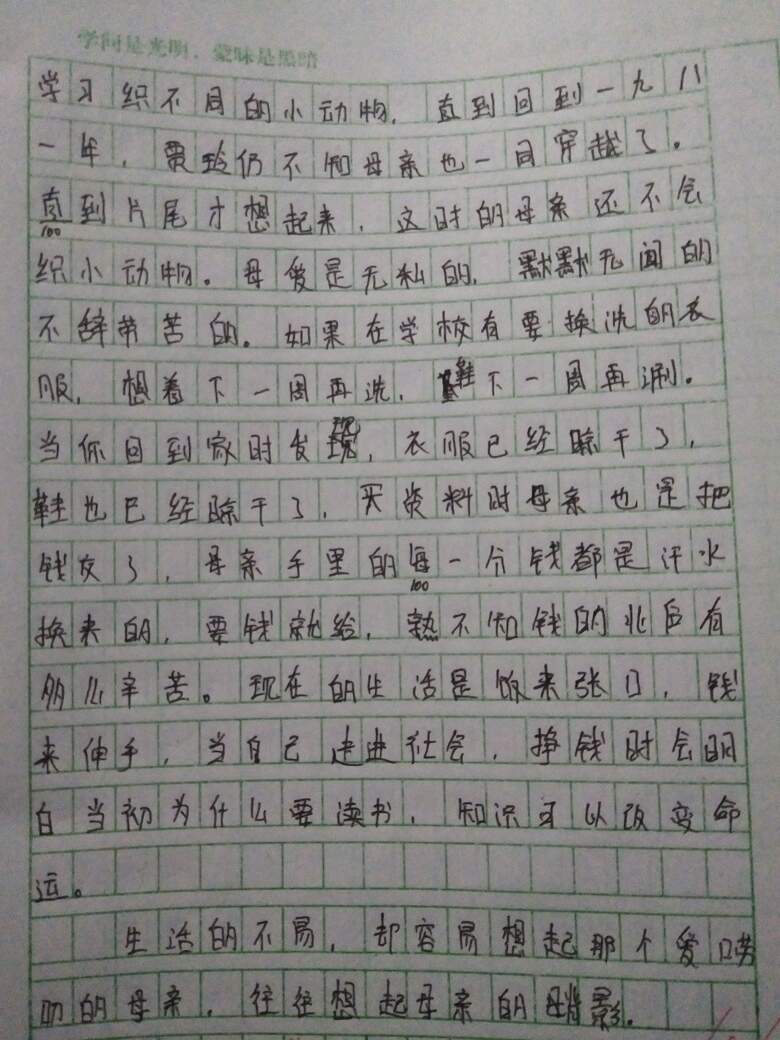 学问是光明，蒙昧是黑暗
学习织不同的小动物，直到回到一九八
一年，贾玲仍不知母亲也一同穿越了。
直到片尾才想起来，这时的母亲还不会
100
织小动物。母爱是无私的，默默无闻的
不辞劳苦的。如果在学校有要换洗的衣
服，想着下一周再洗，鞋下一周再涮。
当你回到家时发现，衣服已经晾干了，
鞋也已经晾干了，买资料时母亲也是把
钱交了，母亲手里的每一分钱都是汗水
100
换来的，要钱就给，熟不知钱的背后有
多么辛苦。现在的生活是饭来张口，钱
来伸手，当自己走进社会，挣钱时会明
白当初为什么要读书，知识可以改变命
运。
生活的不易，却容易想起那个爱唠
叨的母亲，往往想起母亲的背影。